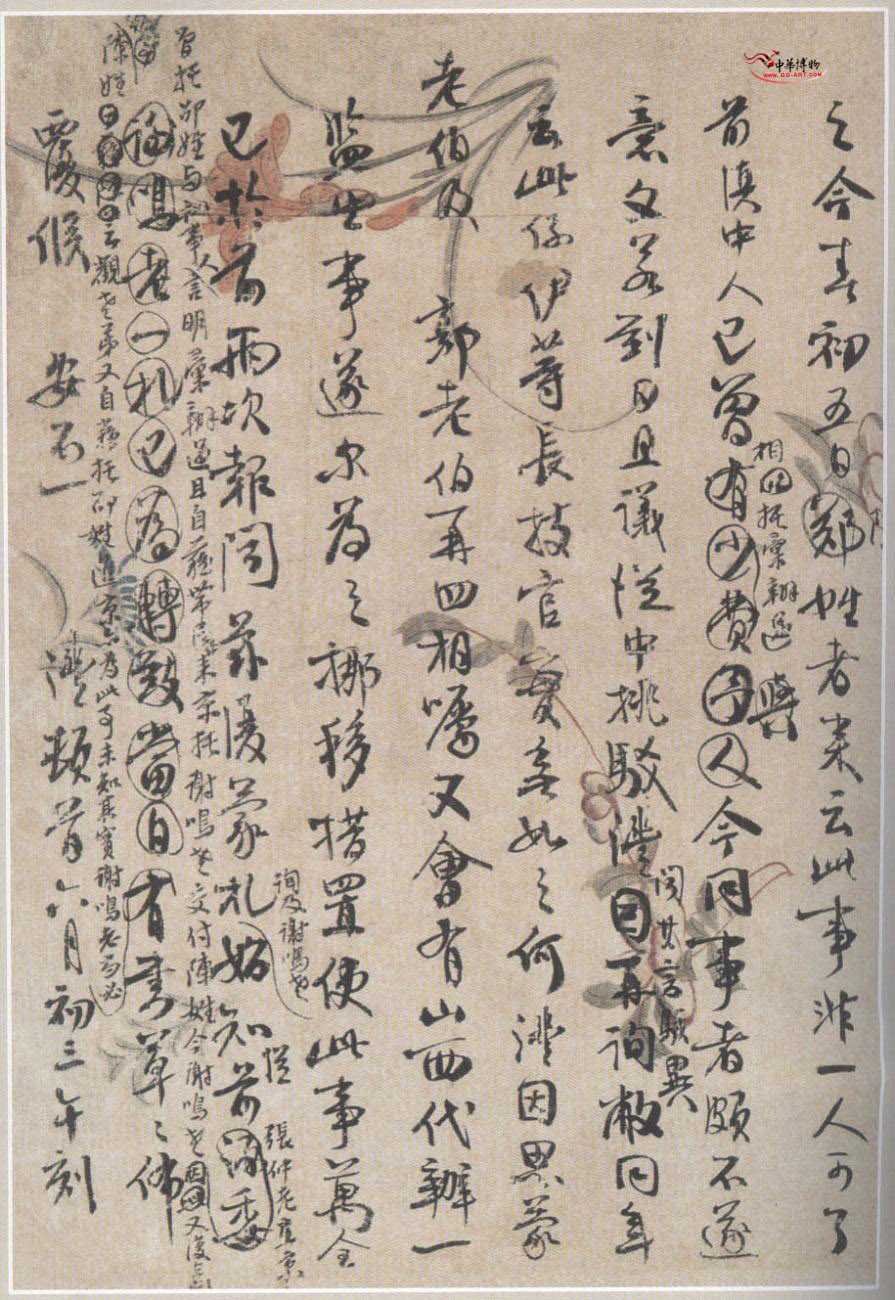 之今春初五日鄭姓者來云此事非一人可了
前滇中人已曾有少費予人今同事者頗不遂
相四托稟辦遞
與
意又若到日且議從中挑駁灃因再詢敝同年
聞其言駭異
云此係伊等長技官實無如之何灃因思蒙
老伯及 鄭老伯再四相囑又會有山西代辦一
監生事遂尔為之挪移措置使此事萬全
詢及謝鳴老
已於前兩次報聞茲復蒙札始知前
從 張仲老
曾托邵姓与初事人言明稟辦遞且自薩帶原來京托謝鳴老交付陳姓今謝鳴老又復
謝鳴老一札已為轉致當日有書草之佈
陳姓 云觀老弟又自薩托邵姓進京亦為此事未知真實謝鳴老另必
覆候 安不一 灃頓首六月初三午刻
中華博物
WWW.GG-ART.COM